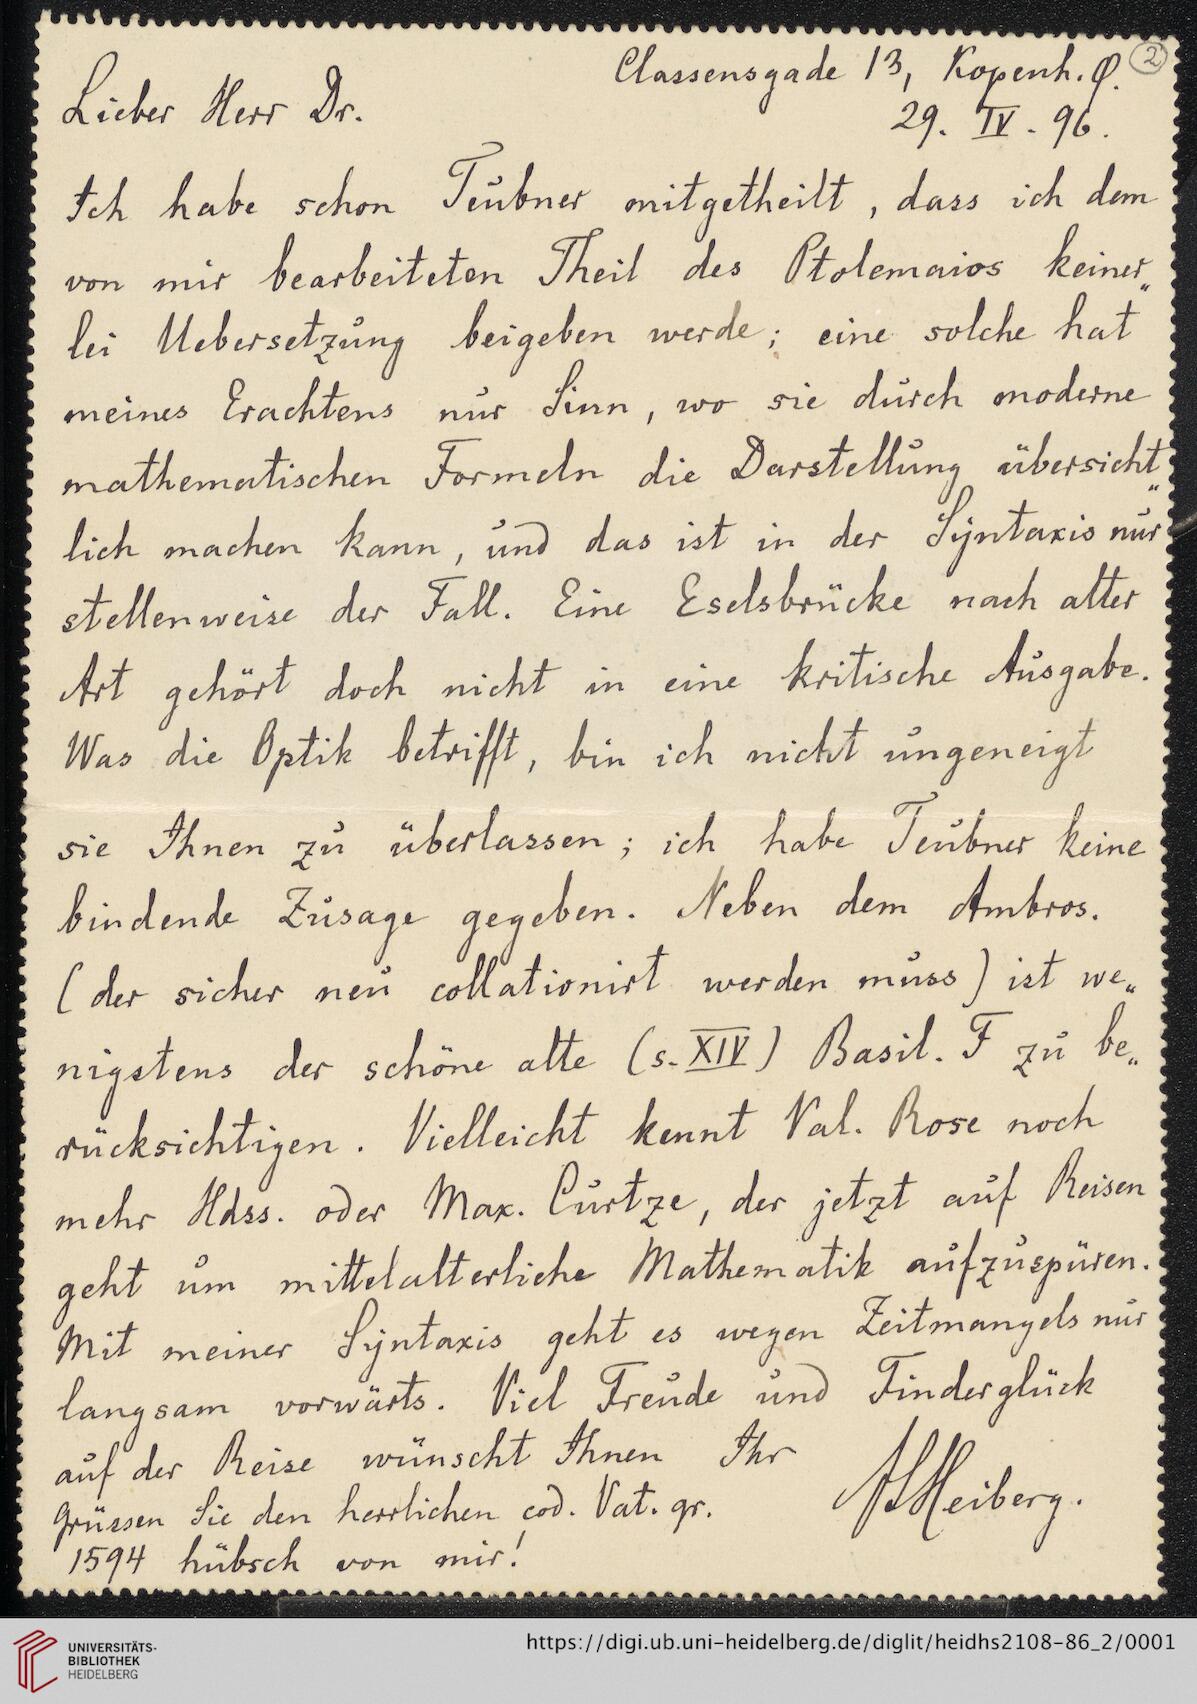 2
Classensgade 13, Kopenh. Ø.
Lieber Herr Dr.
29. IV. 96.
Ich habe schon Teubner mitgetheilt, dass ich dem
von mir bearbeiteten Theil des Ptolemaios keiner„
lei Uebersetzung beigeben werde; eine solche hat
meines Erachtens nur Sinn, wo sie durch moderne
mathematischen Formeln die Darstellung übersicht„
lich machen kann, und das ist in der Syntaxis nur
stellenweise der Fall. Eine Eselsbrücke nach alter
Art gehört doch nicht in eine kritische Ausgabe.
Was die Optik betrifft, bin ich nicht ungeneigt
sie Ihnen zu überlassen; ich habe Teubner keine
bindende Zusage gegeben. Neben dem Ambros.
(der sicher neu collationirt werden muss) ist we„
nigstens der schöne alte (s. XIV) Basil. F zu be„
rücksichtigen. Vielleicht kennt Val. Rose noch
mehr Hdss. oder Max. Curtze, der jetzt auf Reisen
geht um mittelalterliche Mathematik aufzuspüren.
Mit meiner Syntaxis geht es wegen Zeitmangels nur
langsam vorwärts. Viel Freude und Finderglück
auf der Reise wünscht Ihnen Ihr
JLHeiberg.
Grüssen Sie den herrlichen cod. Vat. gr.
1594 hübsch von mir!
UNIVERSITÄTS-
BIBLIOTHEK
HEIDELBERG
https://digi.ub.uni-heidelberg.de/diglit/heidhs2108-86_2/0001